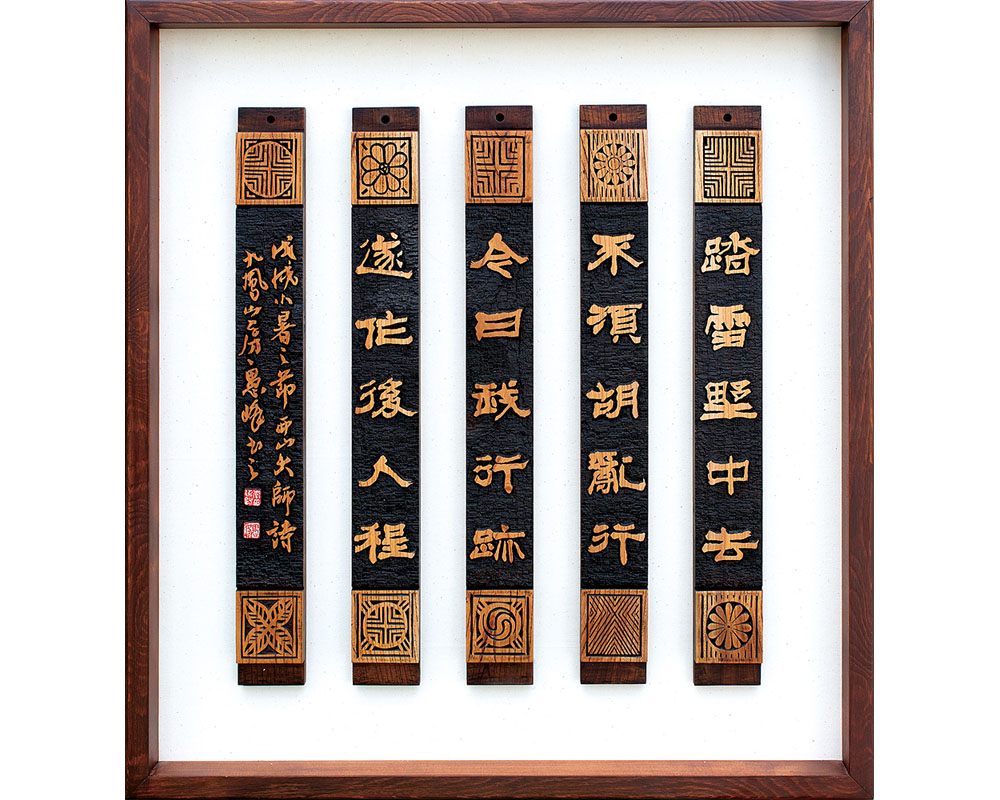 踏雪野中去
不須胡亂行
今日我行跡
遂作後人程
戊戌小暑之節西山大師詩
九鳳山房愚峰书之